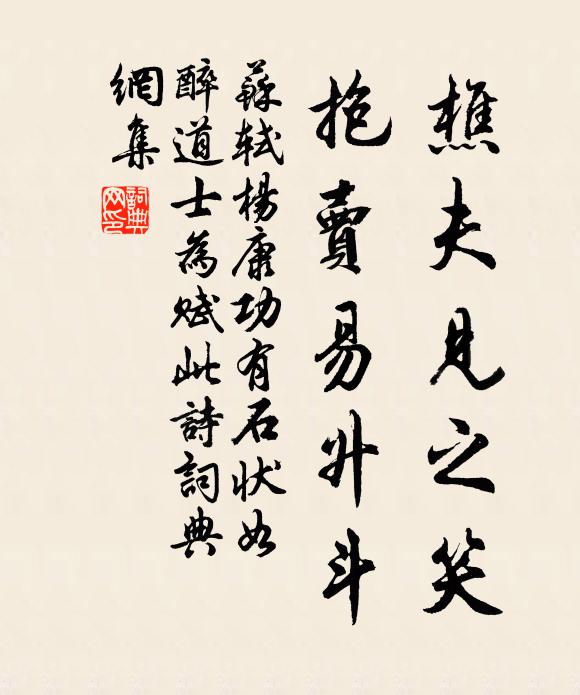 樵夫見之笑
抱賣易升斗
蘇軾楊康功有石狀如
醉道士為賦此詩詞典
網集
詞典
网印